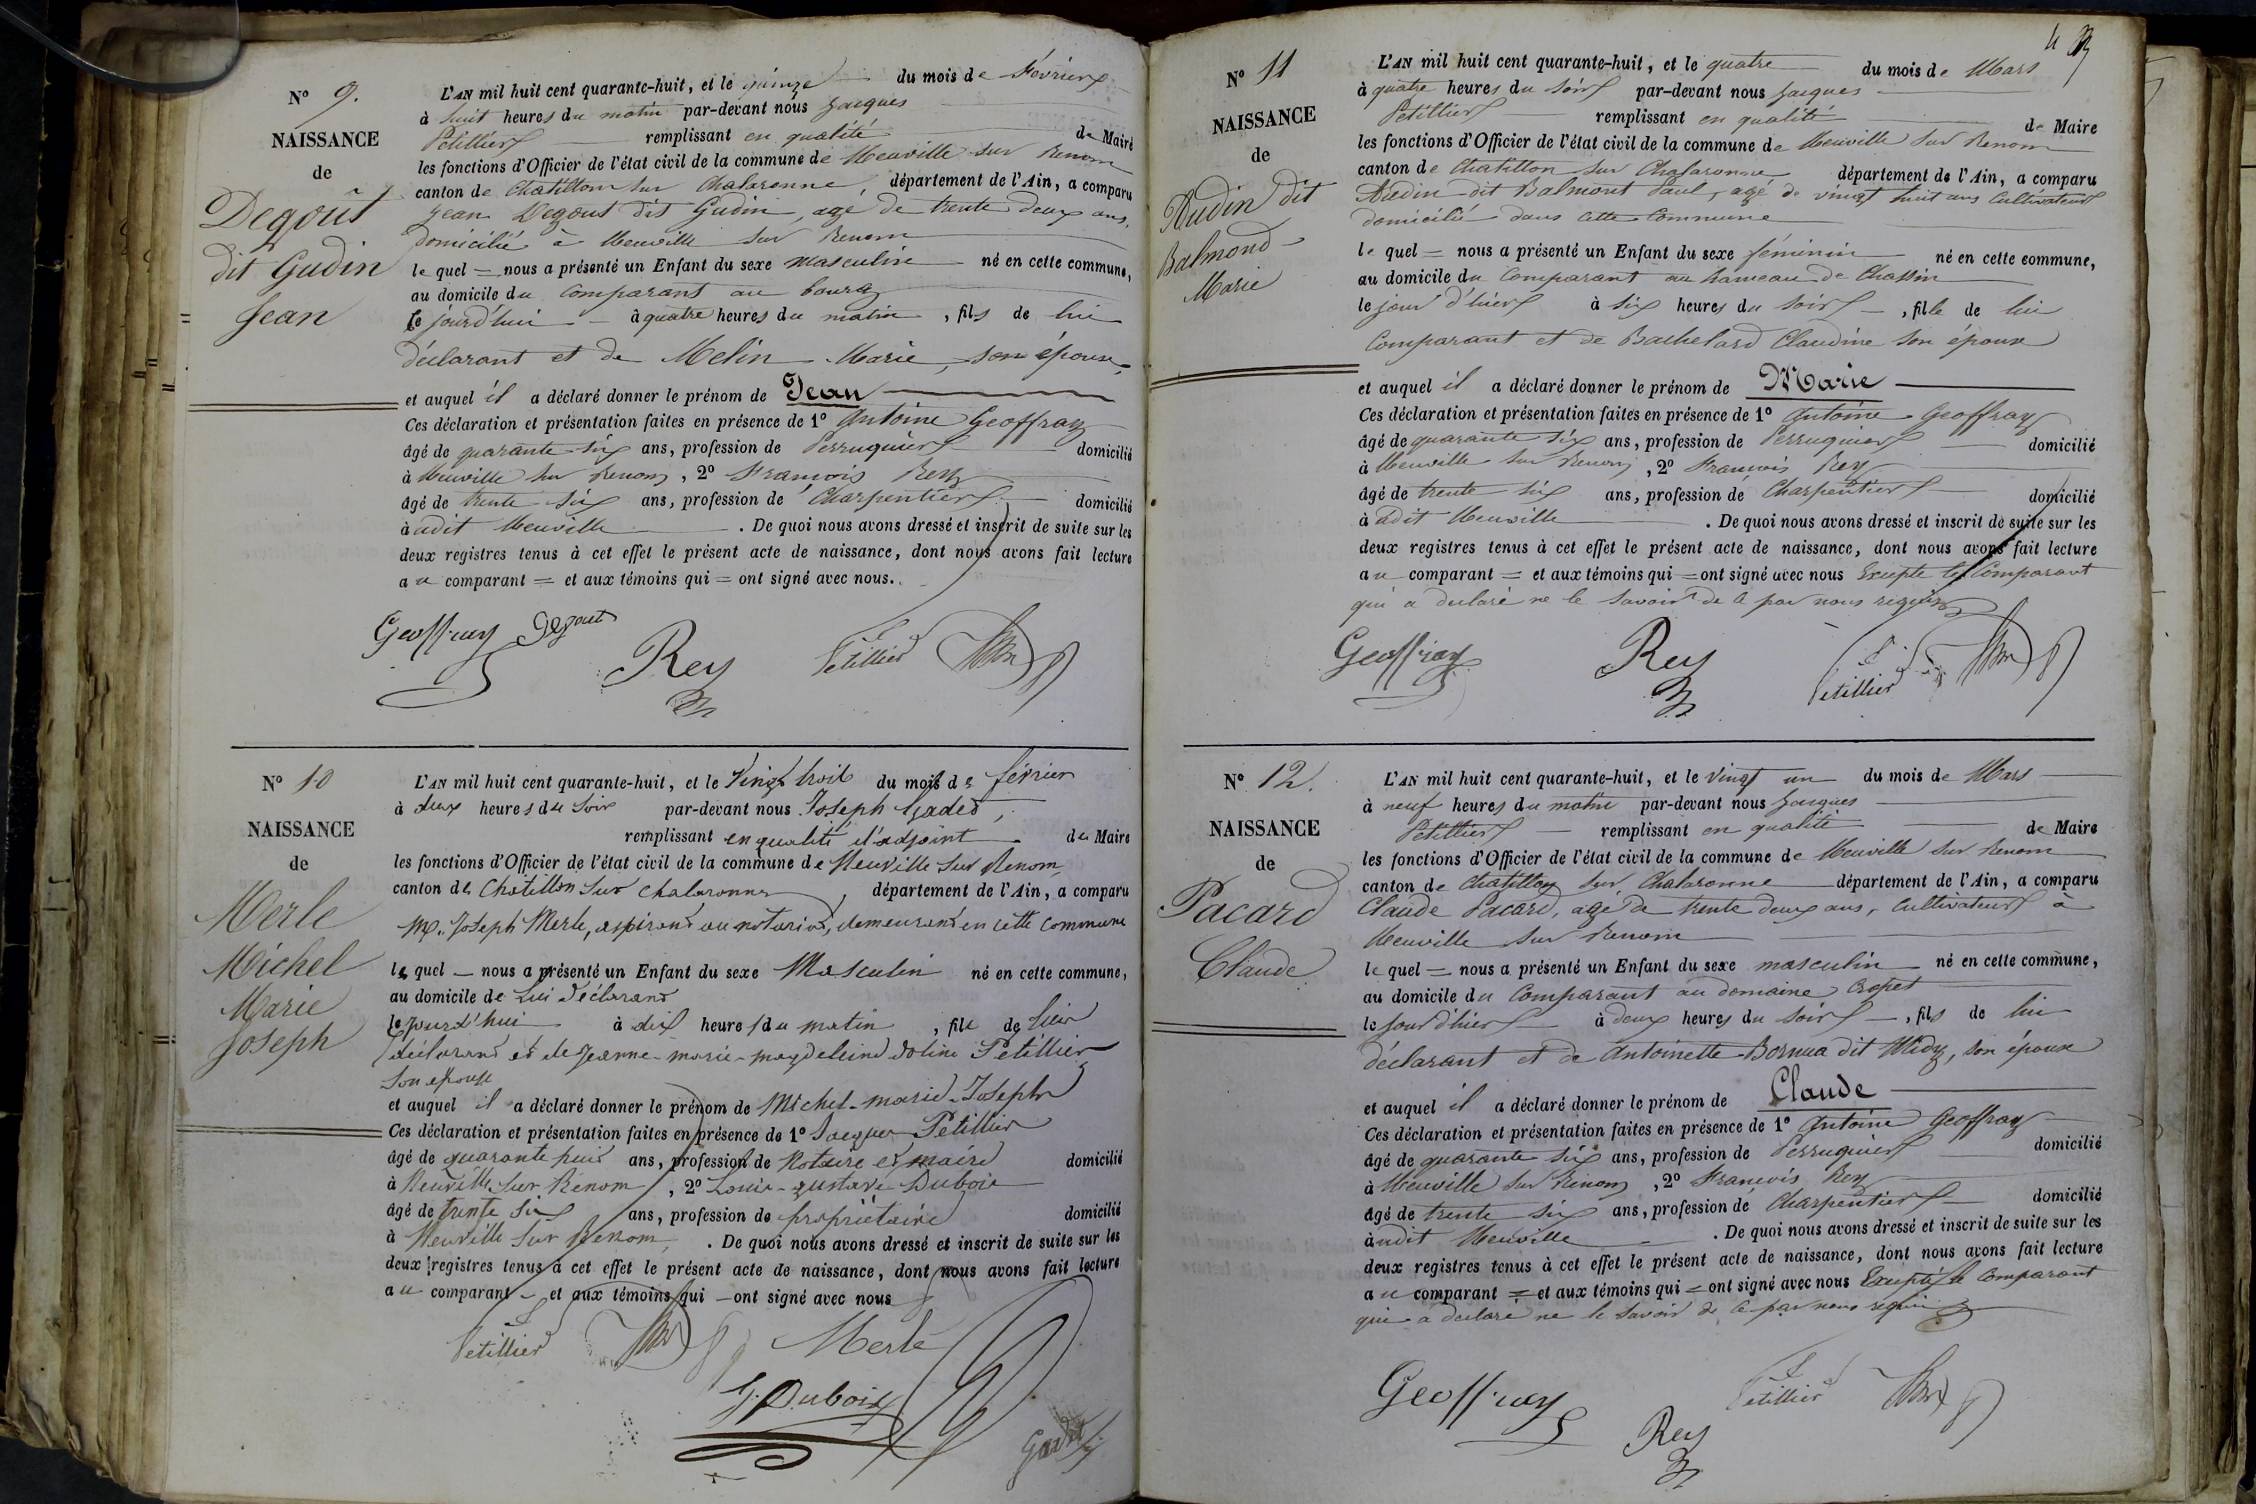 N° 9.
NAISSANCE
de
Degoût
dit Gudin
Jean
L'AN mil huit cent quarante-huit, et le quinze du mois de Février
à huit heures du matin par-devant nous Jacques
Petillier remplissant en qualité de Maire
les fonctions d'Officier de l'état civil de la commune de Neuville sur Renom
canton de Chatillon sur Chalaronne, département de l'Ain, a comparu
Jean Degout dit Gudin, agé de trente deux ans,
domicilié à Neuville sur Renom
le quel = nous a présenté un Enfant du sexe masculin né en cette commune,
au domicile du comparant au bourg
le jourd'hui à quatre heures du matin, fils de lui
déclarant et de Melin Marie, son épouse,
et auquel il a déclaré donner le prénom de Jean
Ces déclaration et présentation faites en présence de 1° Antoine Geoffray
âgé de quarante six ans, profession de Perruquier domicilié
à Neuville sur Renom, 2° François Rey
âgé de trente six ans, profession de Charpentier domicilié
à udit Neuville . De quoi nous avons dressé et inscrit de suite sur les
deux registres tenus à cet effet le présent acte de naissance, dont nous avons fait lecture
au comparant = et aux témoins qui = ont signé avec nous.
Geoffray Degout Rey Petillier
N° 10
NAISSANCE
de
Merle
Michel
Marie
Joseph
L'AN mil huit cent quarante-huit, et le Vingt trois du mois de février
à deux heures du soir par-devant nous Joseph Gadet,
remplissant en qualité d'adjoint du Maire
les fonctions d'Officier de l'état civil de la commune de Neuville sur Renom,
canton de Chatillon sur Chalaronne, département de l'Ain, a comparu
Mr. Joseph Merle, aspirant au notariat, demeurant en cette commune
le quel — nous a présenté un Enfant du sexe Masculin né en cette commune,
au domicile de lui déclarant
le jourd'hui à dix heures du matin, fils de lui
déclarant et de Jeanne-marie-magdeleine Petillier
son épouse
et auquel il a déclaré donner le prénom de Michel-marie-Joseph
Ces déclaration et présentation faites en présence de 1° Jacques Petillier
âgé de quarante huit ans, profession de Notaire et maire domicilié
à Neuville sur Renom, 2° Louis-gustave Dubois
âgé de trente six ans, profession de propriétaire domicilié
à Neuville sur Renom, . De quoi nous avons dressé et inscrit de suite sur les
deux registres tenus à cet effet le présent acte de naissance, dont nous avons fait lecture
au comparant — et aux témoins qui — ont signé avec nous
Petillier Merle
G. Dubois
Gadet
4
N° 11
NAISSANCE
de
Audin dit
Balmond
Marie
L'AN mil huit cent quarante-huit, et le quatre du mois de Mars
à quatre heures du soir par-devant nous Jacques
Petillier remplissant en qualité de Maire
les fonctions d'Officier de l'état civil de la commune de Neuville sur Renom
canton de Chatillon sur Chalaronne département de l'Ain, a comparu
Audin dit Balmont Paul, agé de vingt huit ans Cultivateur
domicilié dans cette Commune
le quel = nous a présenté un Enfant du sexe féminin né en cette commune,
au domicile du Comparant au hameau de Chassin
le jour d'hier à six heures du soir, fille de lui
Comparant et de Bachelard Claudine son épouse
et auquel il a déclaré donner le prénom de Marie
Ces déclaration et présentation faites en présence de 1° Antoine Geoffray
âgé de quarante six ans, profession de Perruquier domicilié
à Neuville sur Renom, 2° François Rey
âgé de trente six ans, profession de Charpentier domicilié
à udit Neuville . De quoi nous avons dressé et inscrit de suite sur les
deux registres tenus à cet effet le présent acte de naissance, dont nous avons fait lecture
au comparant = et aux témoins qui = ont signé avec nous Excepté le Comparant
qui a declaré ne le savoir de ce par nous requis
Geoffray Rey Petillier
N° 12.
NAISSANCE
de
Pacard
Claude
L'AN mil huit cent quarante-huit, et le vingt un du mois de Mars
à neuf heures du matin par-devant nous Jacques
Petillier remplissant en qualité de Maire
les fonctions d'Officier de l'état civil de la commune de Neuville sur Renom
canton de Chatillon sur Chalaronne département de l'Ain, a comparu
Claude Pacard, agé de trente deux ans, Cultivateur à
Neuville sur Renom
le quel = nous a présenté un Enfant du sexe masculin né en cette commune,
au domicile du Comparant au domaine Cropet
le jour d'hier à deux heures du soir, fils de lui
déclarant et de Antoinette Bornua dit Midy, son épouse
et auquel il a déclaré donner le prénom de Claude
Ces déclaration et présentation faites en présence de 1° Antoine Geoffray
âgé de quarante six ans, profession de Perruquier domicilié
à Neuville sur Renom, 2° François Rey
âgé de trente six ans, profession de Charpentier domicilié
à udit Neuville . De quoi nous avons dressé et inscrit de suite sur les
deux registres tenus à cet effet le présent acte de naissance, dont nous avons fait lecture
au comparant = et aux témoins qui = ont signé avec nous Excepté le Comparant
qui a declaré ne le savoir de ce par nous requis
Geoffray Rey Petillier